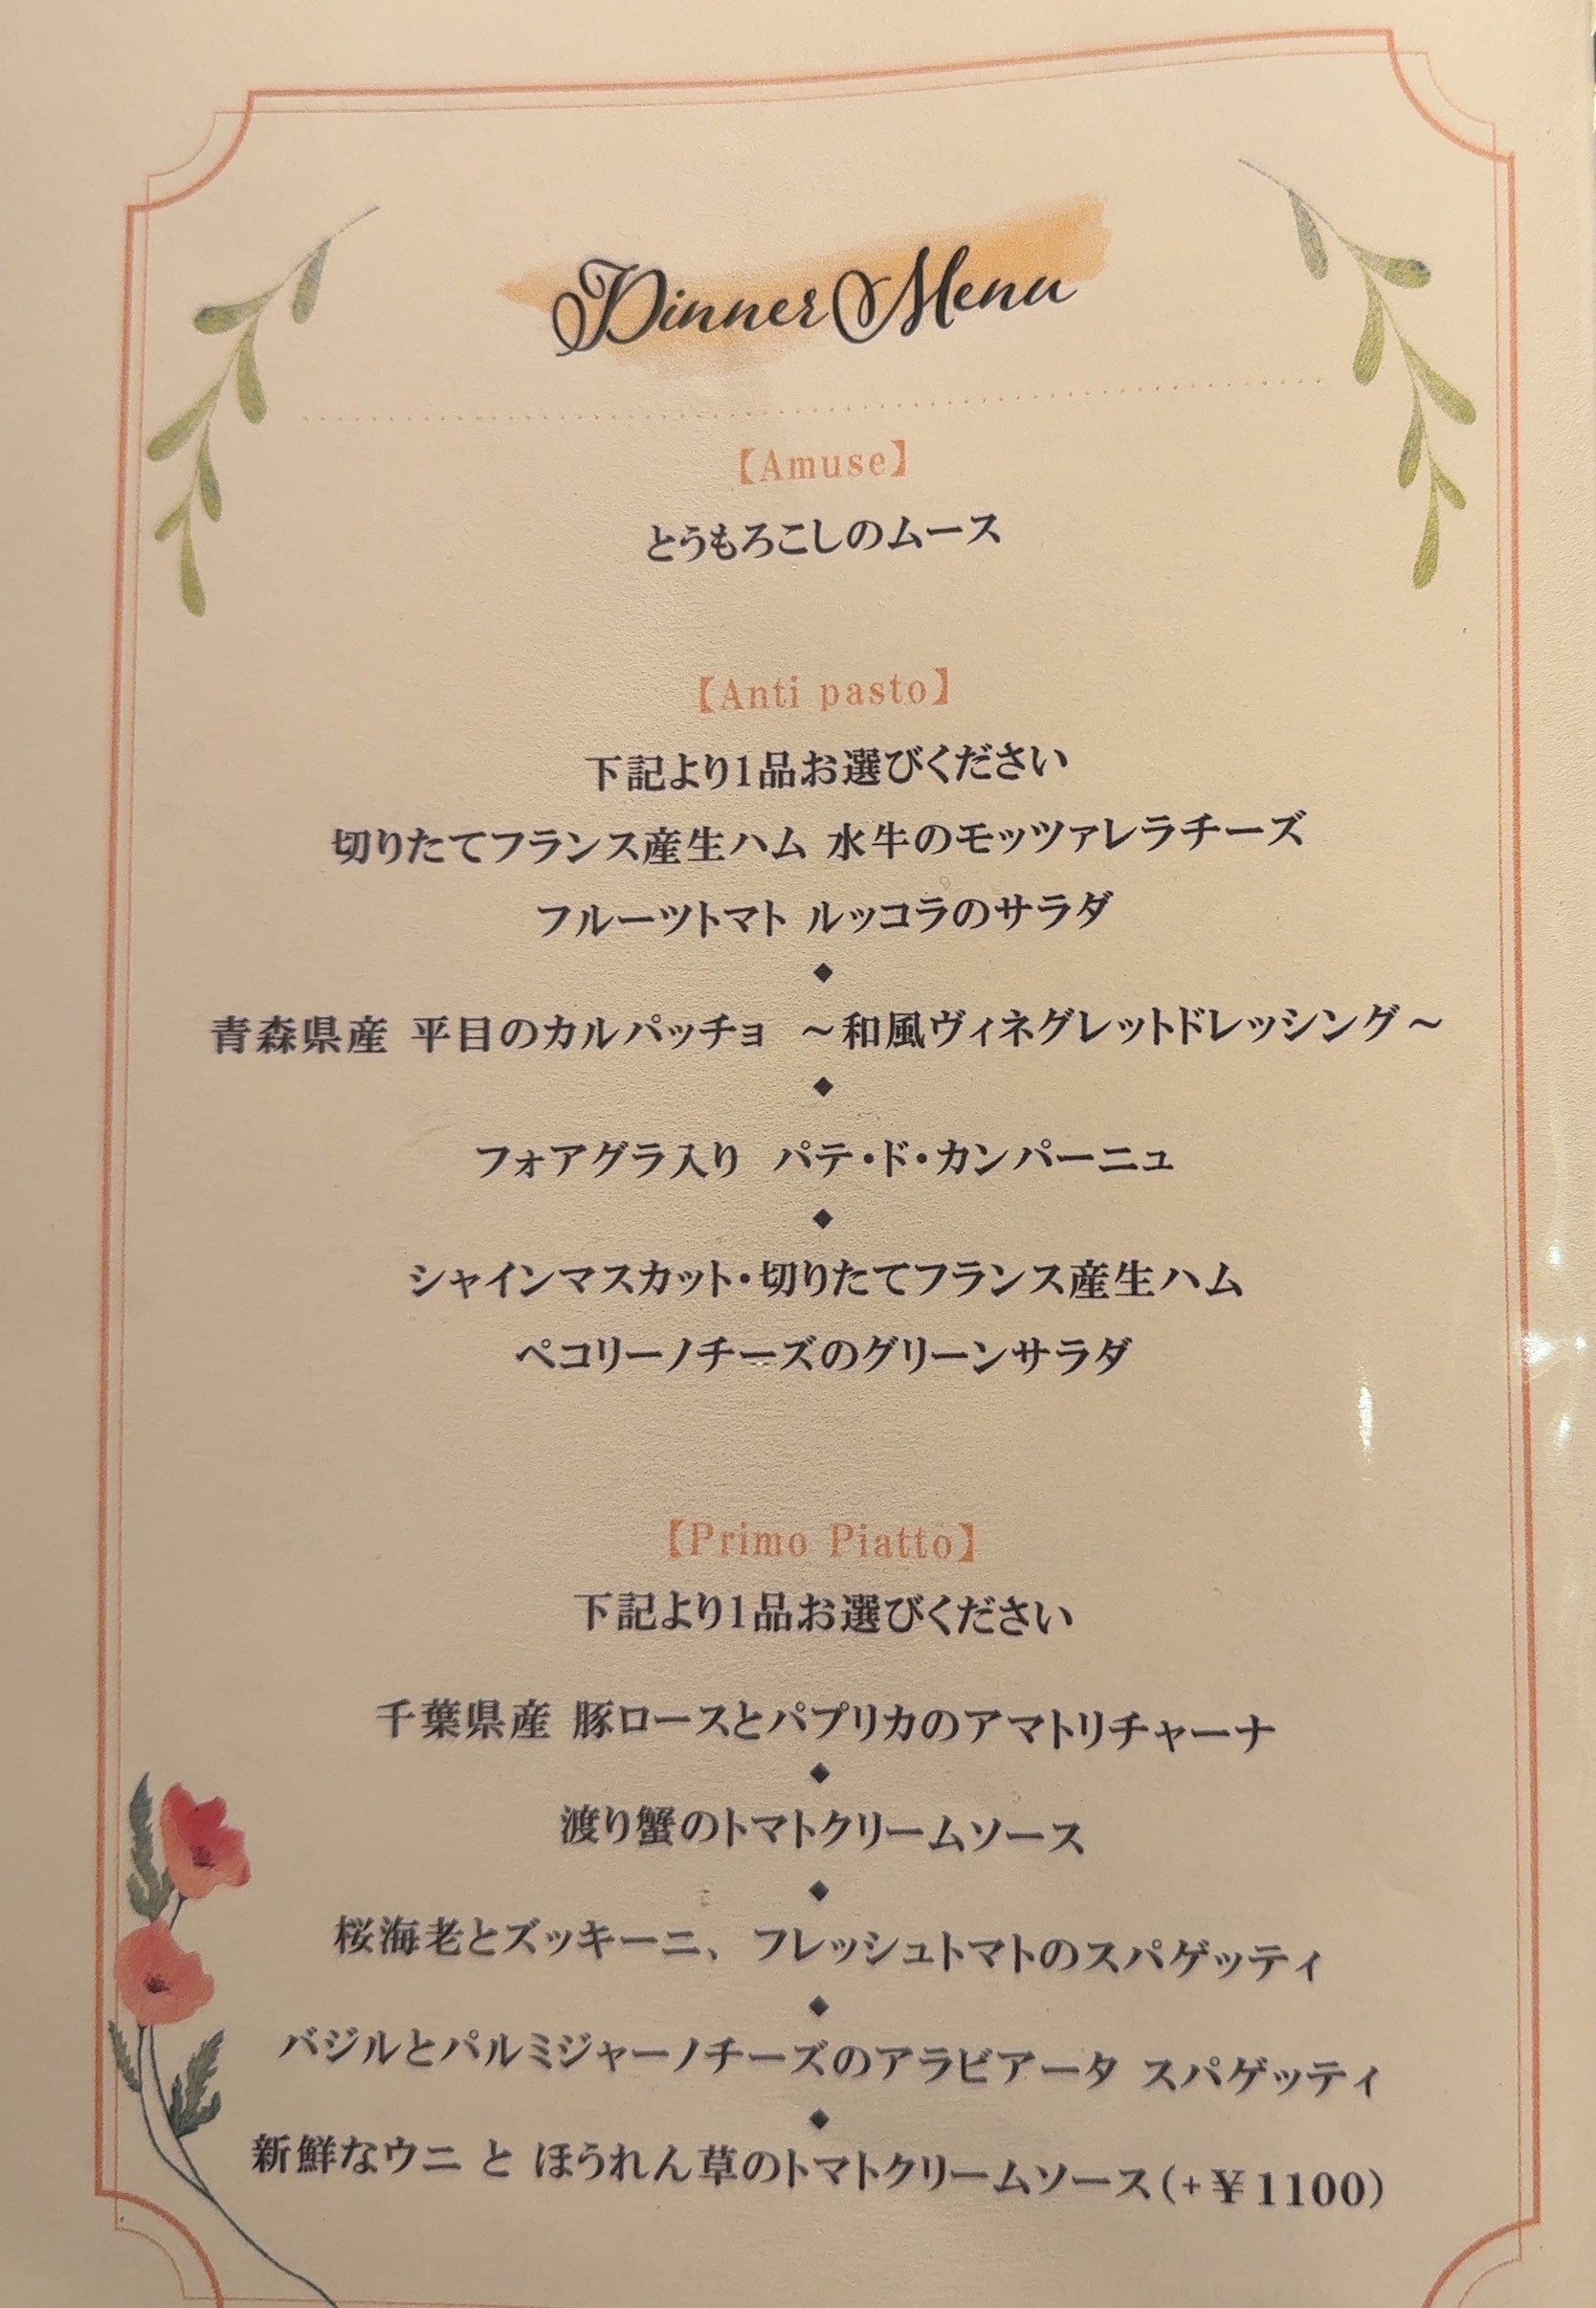 Dinner Menu
【Amuse】
とうもろこしのムース
【Anti pasto】
下記より1品お選びください
切りたてフランス産生ハム 水牛のモッツァレラチーズ
フルーツトマト ルッコラのサラダ
◆
青森県産 平目のカルパッチョ ～和風ヴィネグレットドレッシング～
◆
フォアグラ入り パテ・ド・カンパーニュ
◆
シャインマスカット・切りたてフランス産生ハム
ペコリーノチーズのグリーンサラダ
【Primo Piatto】
下記より1品お選びください
千葉県産 豚ロースとパプリカのアマトリチャーナ
◆
渡り蟹のトマトクリームソース
◆
桜海老とズッキーニ、フレッシュトマトのスパゲッティ
◆
バジルとパルミジャーノチーズのアラビアータ スパゲッティ
◆
新鮮なウニ と ほうれん草のトマトクリームソース(+¥1100)